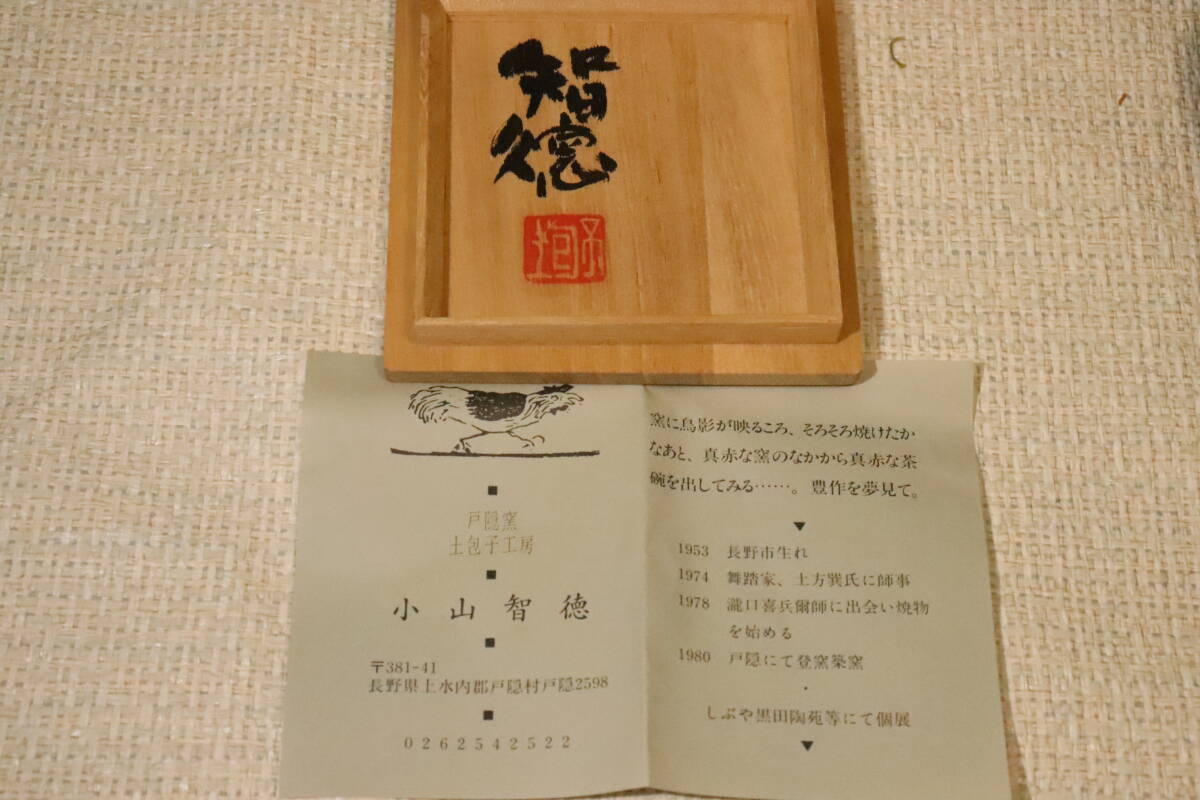 智徳
土包子
戸隠窯
土包子工房
小山智徳
〒381-41
長野県上水内郡戸隠村戸隠2598
0262542522
窯に鳥影が映るころ、そろそろ焼けたか
なあと、真赤な窯のなかから真赤な茶
碗を出してみる……。豊作を夢見て。
1953 長野市生れ
1974 舞踏家、土方巽氏に師事
1978 瀧口喜兵爾師に出会い焼物
を始める
1980 戸隠にて登窯築窯
しぶや黒田陶苑等にて個展